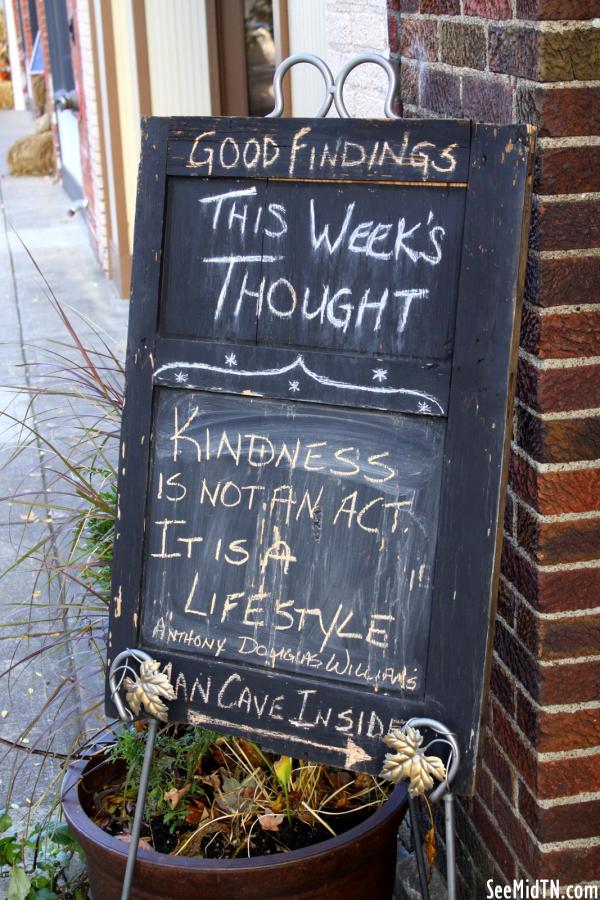 GOOD FINDINGS
THIS WEEK'S
THOUGHT
KINDNESS
IS NOT AN ACT.
IT IS A
LIFESTYLE
ANTHONY DOUGLAS WILLIAMS
MAN CAVE INSIDE
SeeMidTN.com